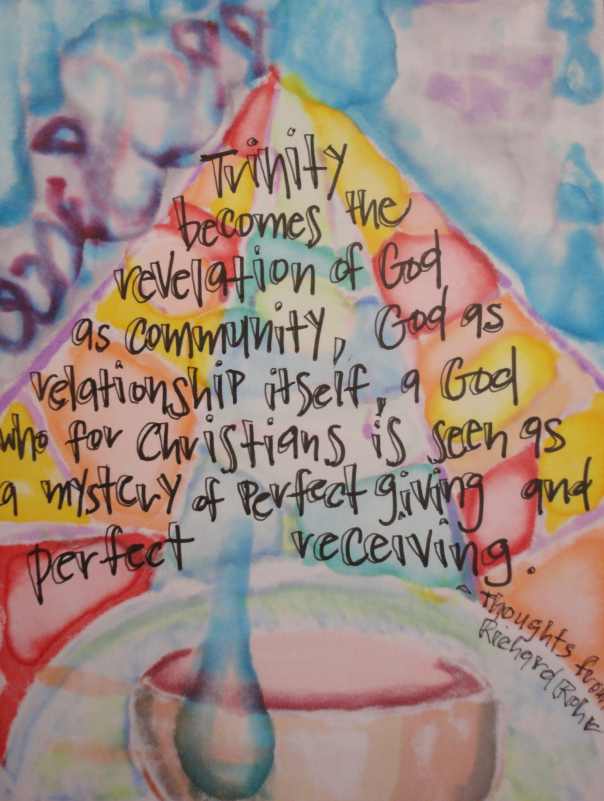 Trinity
becomes the
revelation of God
as community, God as
relationship itself, a God
who for Christians is seen as
a mystery of perfect giving and
perfect receiving.
Thoughts from
Richard Rohr